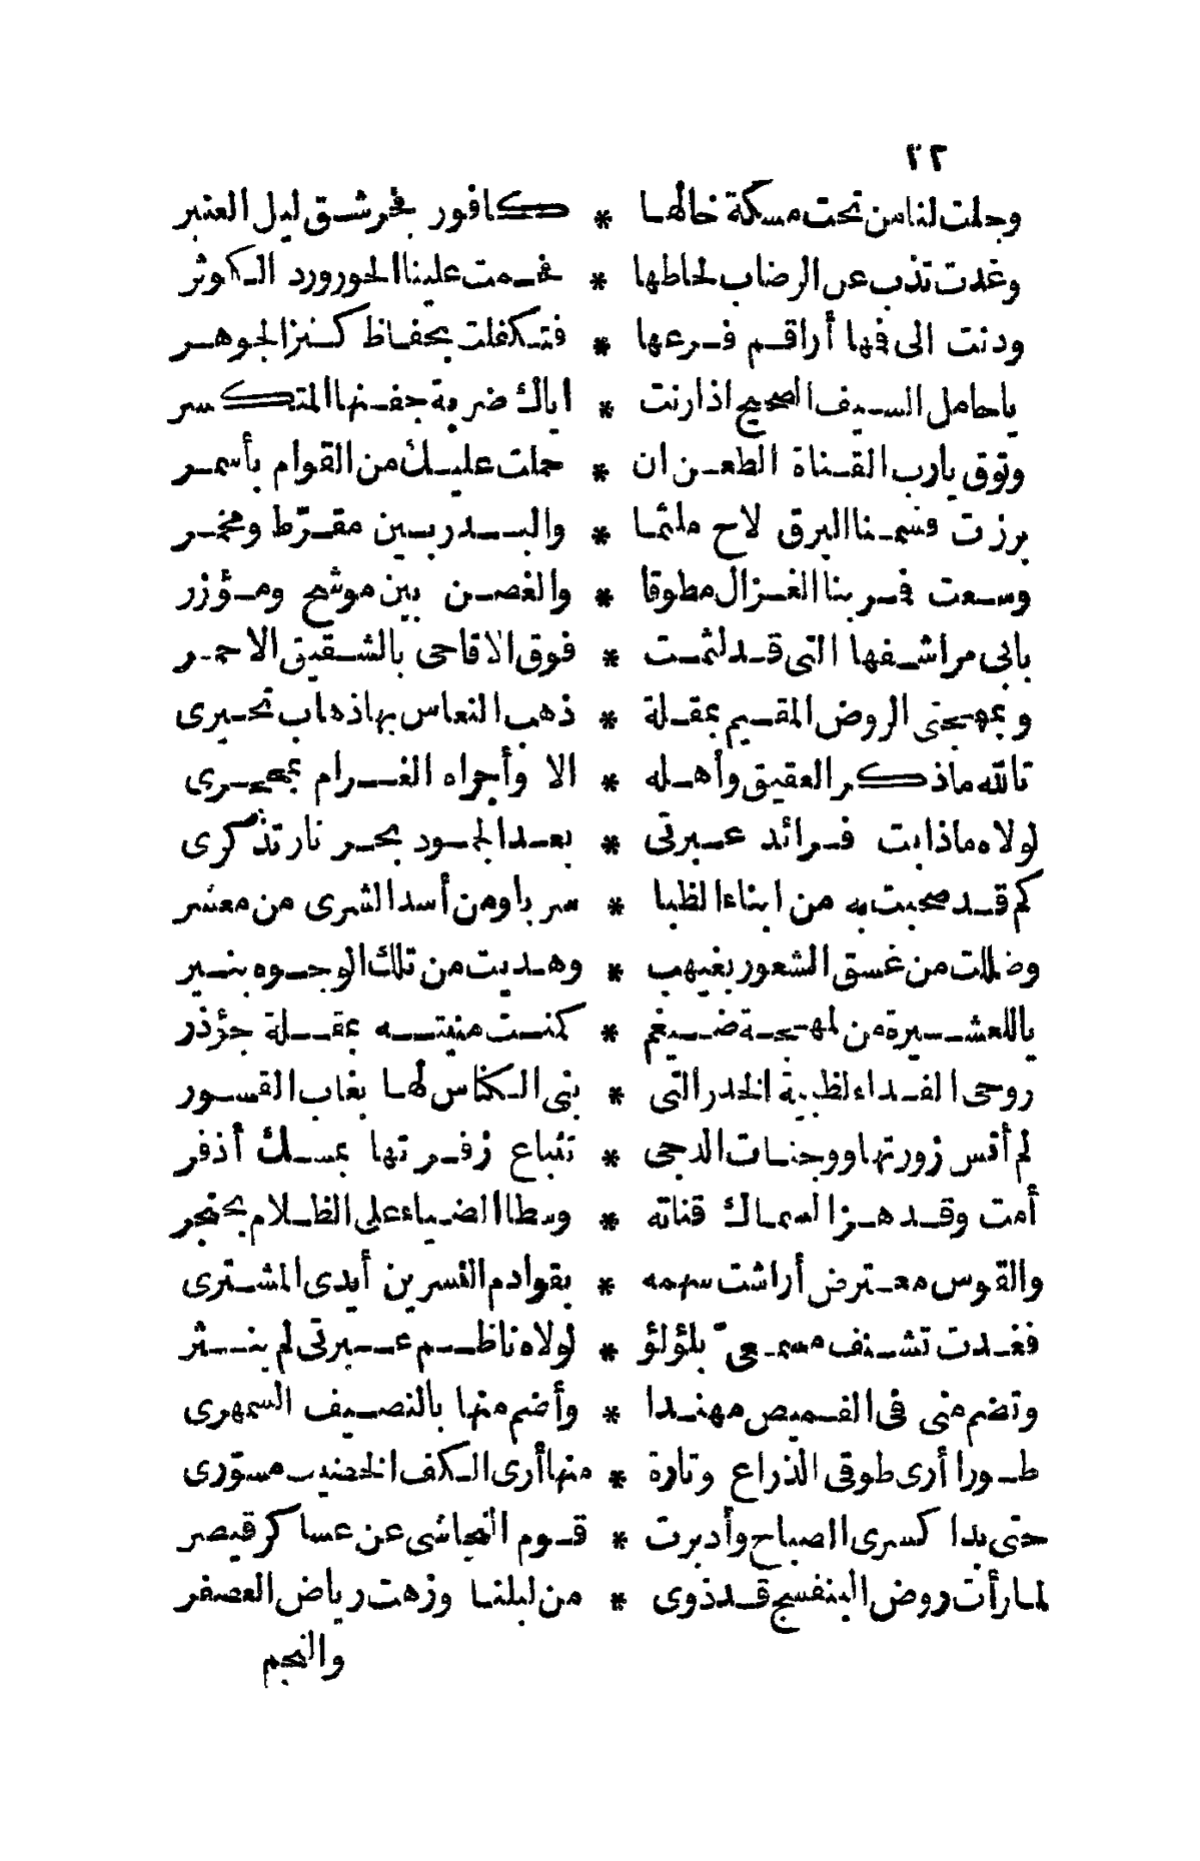 ٢٢
وجلت لنا من تحت مسكة خالها * كافور فجر شق ليل العنبر
وغدت تذب عن الرضاب لحاظها * فحمت علينا الحور ورد الكوثر
ودنت الى فيها أراقم فرعها * فتكفلت بحفاظ كنز الجوهر
يا حامل السيف الصحيح اذا رنت * اياك ضربة جفنها المتكسر
وتوق يارب القناة الطعن ان * حملت عليك من القوام بأسمر
برزت فشمنا البرق لاح ملثما * والبدر بين مقرّط ومخمر
وسعت فمر بنا الغزال مطوقا * والغصن بين موشح ومؤزر
بابى مراشفها التى قد لثمت * فوق الاقاحى بالشقيق الاحمر
وبمهجتى الروض المقيم بمقلة * ذهب النعاس بها ذهاب تحيرى
تالله ماذكر العقيق وأهله * الا وأجراه الغرام بمحجرى
لولاه ماذابت فرائد عبرتى * بعد الجمود بحر نار تذكرى
كم قد صحبت به من ابناء الظبا * سربا ومن أسد الشرى من معشر
وضللت من غسق الشعور بغيهب * وهديت من تلك الوجوه بنير
ياللعشيرة من لمهجة ضيغم * كمنت منيته بمقلة جؤذر
روحى الفداء لظبية الخدر التى * بنى الكناس لها بغاب القسور
لم أنس زورتها ووجنات الدجى * تنباع زفرتها بمسك أذفر
أمت وقد هز السماك قناته * وسطا الضياء على الظلام بخنجر
والقوس معترض أراشت سهمه * بقوادم النسرين أيدى المشترى
فغدت تشنف مسمعىّ بلؤلؤ * لولاه ناظم عبرتى لم ينثر
وتضم منى فى القميص مهندا * وأضم منها بالنصيف السمهرى
طورا أرى طوقى الذراع وتارة * منها أرى الكف الخضيب مسوّرى
حتى بدا كسرى الصباح وأدبرت * قوم النجاشى عن عساكر قيصر
لما رأت روض البنفسج قد ذوى * من ليلنا وزهت رياض العصفر
والنجم